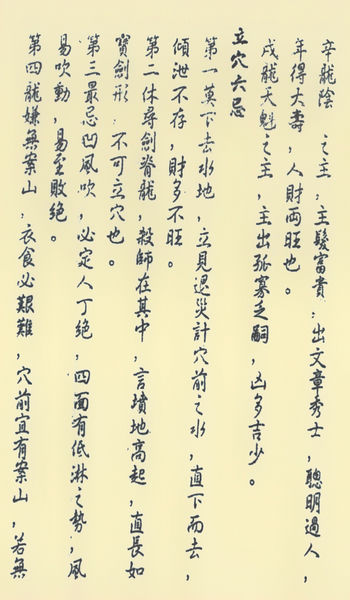 辛龍陰 之主，主發富貴：出文章秀士，聰明過人，
年得大壽，人財両旺也。
戌龍天魁之主，主出孤寡乏嗣，凶多吉少。
立穴六忌
第一莫下去水地，立見退災計穴前之水，直下而去，
傾泄不存，財多不旺。
第二休尋劍脊龍，殺師在其中，言墳地高起，直長如
寶劍形，不可立穴也。
第三最忌凹風吹，必定人丁絕，四面有低淋之勢，風
易吹動，易至敗絕。
第四龍嫌無案山，衣食必艱難，穴前宜有案山，若無